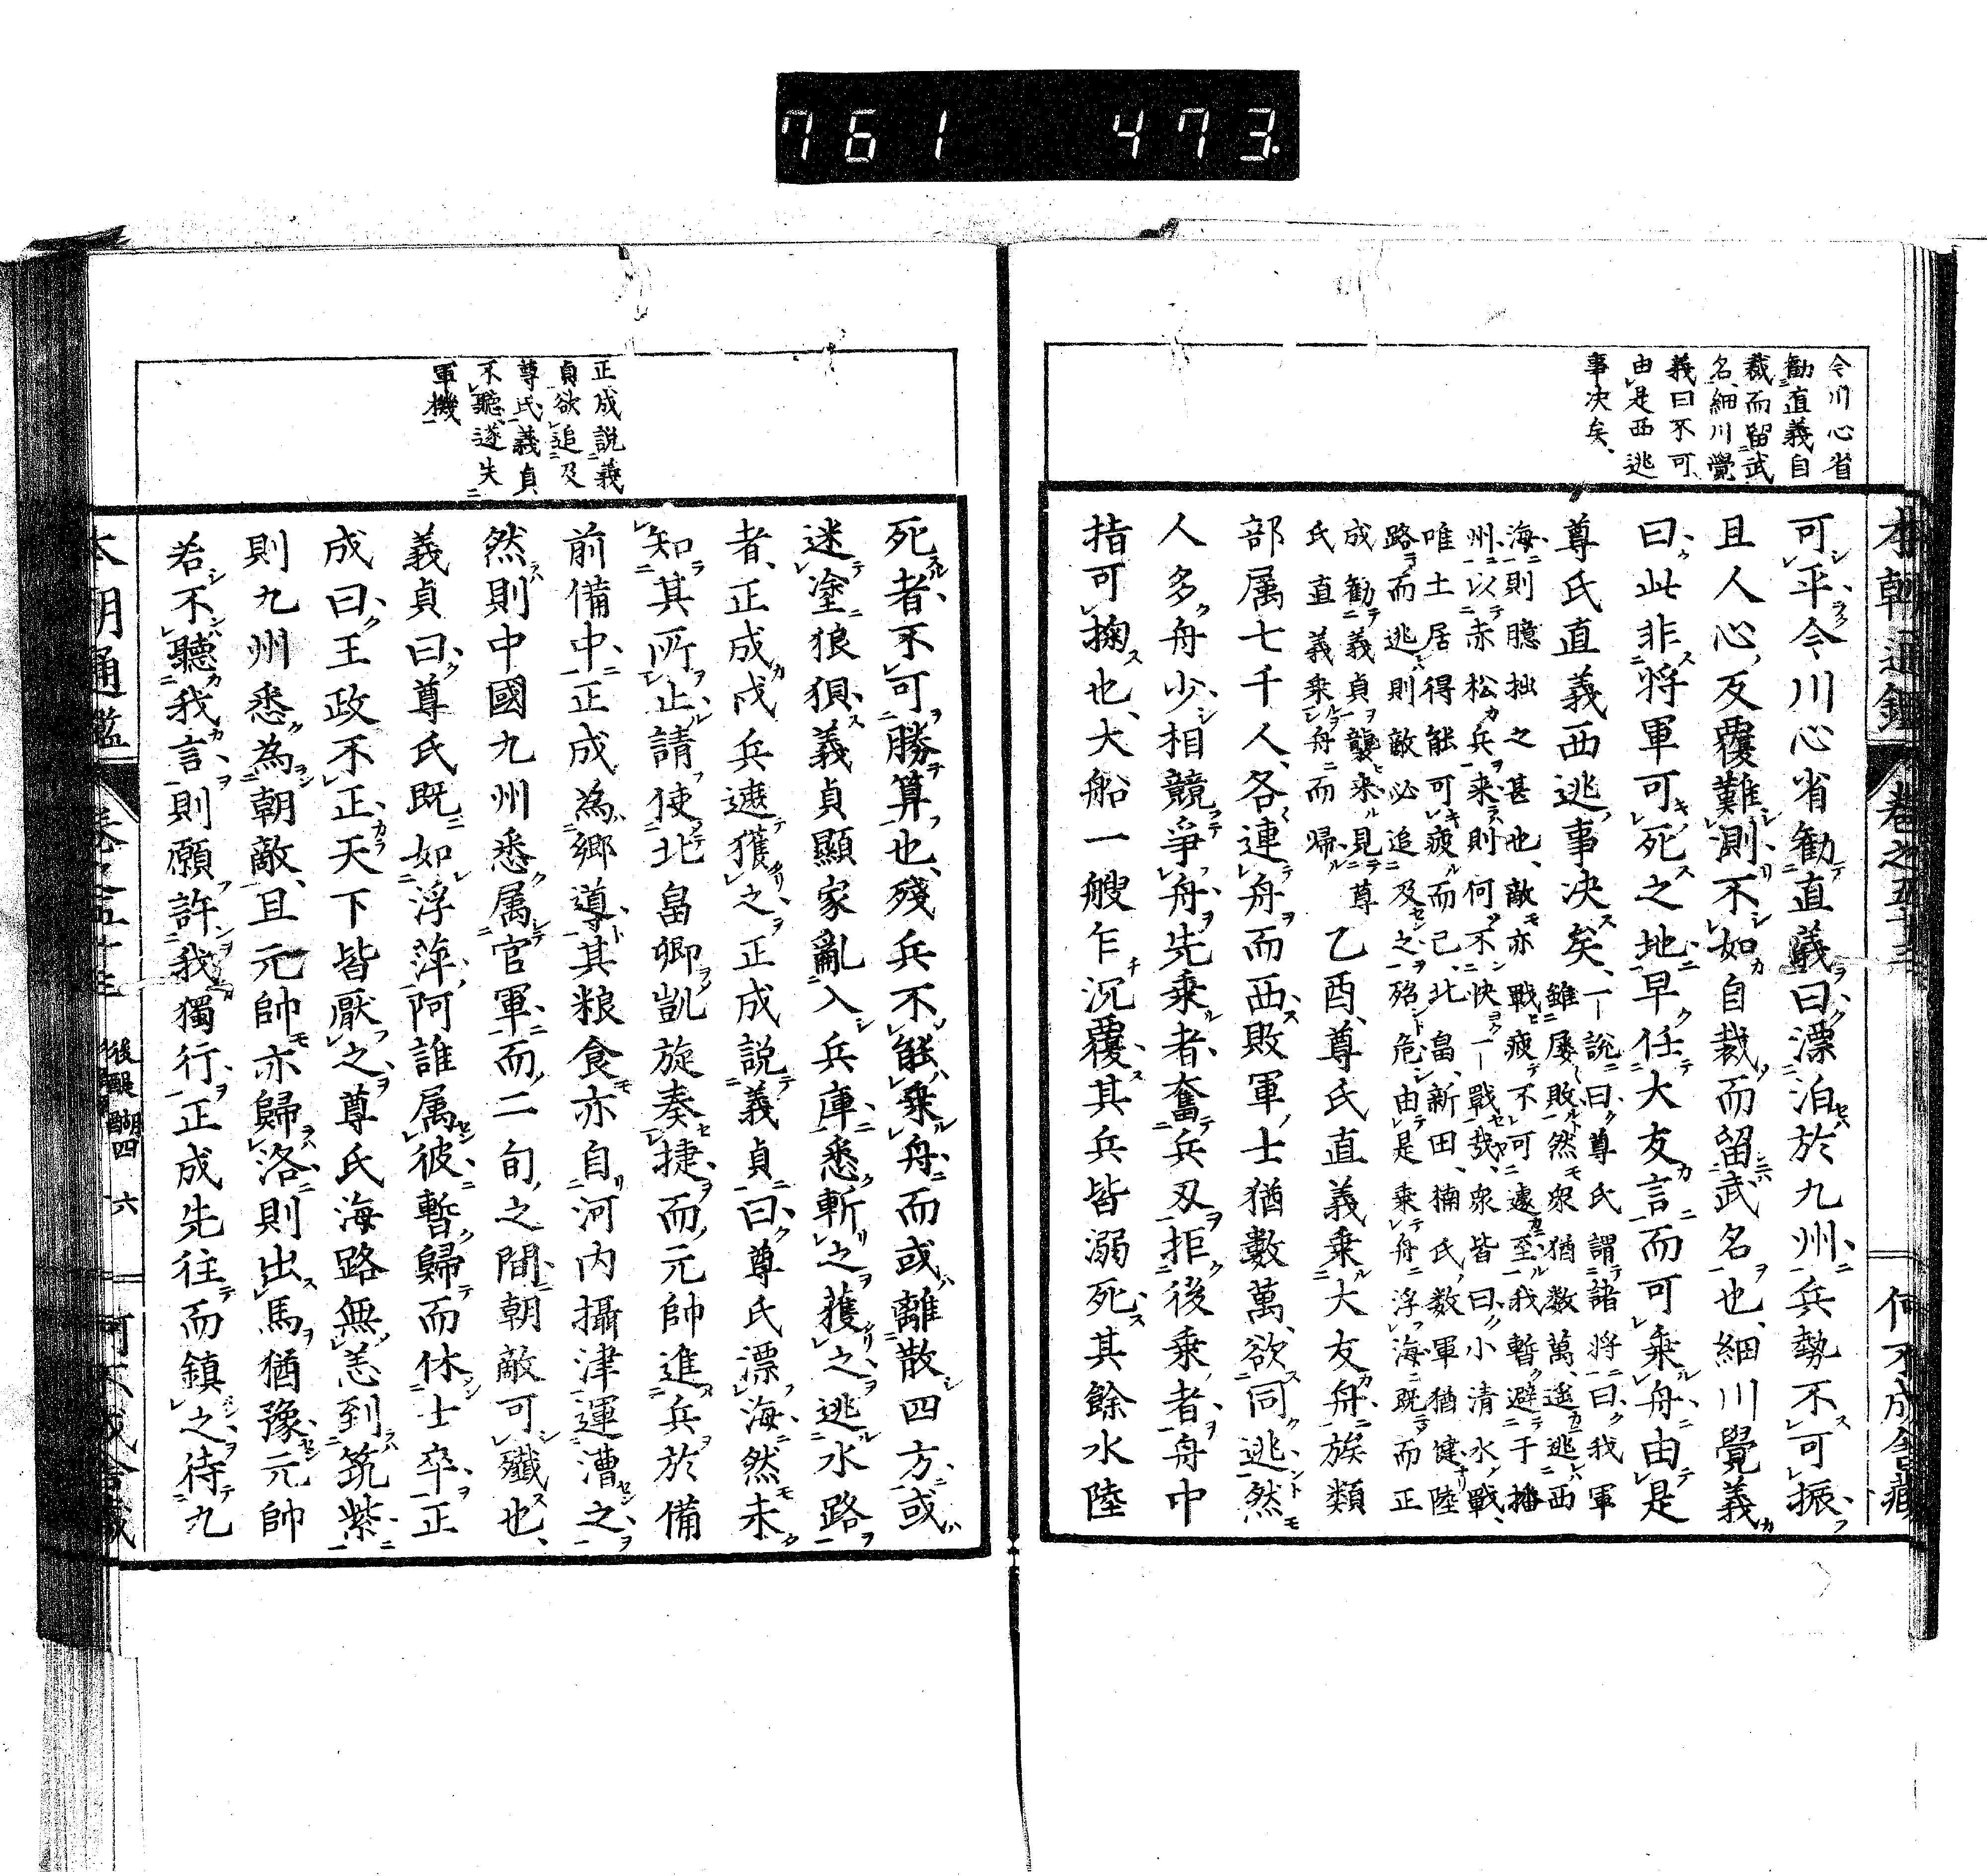 761 473.
令川心省
勧直義自
裁而留武
名、細川覺
義曰不可
由是西逃
事决矣、
可乎今川心省勧直義曰漂泊於九州兵勢不可振
且人心反覆難測不如自裁而留武名也、細川覺義
曰此非将軍可死之地早任大友言而可乗舟由是
尊氏直義西逃事决矣、一說曰尊氏謂諸将曰我軍
雖屡敗然衆猶数萬、遥逃西
海則臆拙之甚也、敵亦戰疲不可遽至我暫避于播
州以赤松兵来則何不快一戰哉、衆皆曰小清水戰、
唯土居得能可疲而已、北畠、新田、楠氏数軍猶健陸
路而逃則敵必追及之殆危由是乗舟浮海既而正
成勧義貞襲来見尊
氏直義乗舟而歸
乙酉、尊氏直義乗大友舟族類
部属七千人、各連舟而西敗軍士猶數萬、欲同逃然
人多舟少相競爭舟先乗者奮兵刄拒後乗者舟中
指可掬也、大船一艘乍沉覆其兵皆溺死其餘水陸
本朝通鑑 卷之五十三 何不成舎蔵
正成說義
貞欲追及
尊氏義貞
不聽、遂失
軍機
死者不可勝算也、殘兵不能乗舟而或離散四方或
迷塗狼狽義貞顯家亂入兵庫悉斬之獲之逃水路
者、正成戍兵遮獲之正成說義貞曰尊氏漂海然未
知其所止請使北畠卿凱旋奏捷而元帥進兵於備
前備中正成為郷導其粮食亦自河内攝津運漕之
然則中國九州悉属官軍而二旬之間朝敵可殲也、
義貞曰尊氏既如浮萍阿誰属彼暫歸而休士卒正
成曰王政不正天下皆厭之尊氏海路無恙到筑紫
則九州悉為朝敵、且元帥亦歸洛則出馬猶豫元帥
若不聽我言則願許我獨行正成先往而鎮之待九
本朝通鑑 卷之五十三 後醍醐四 六 何不成舎蔵